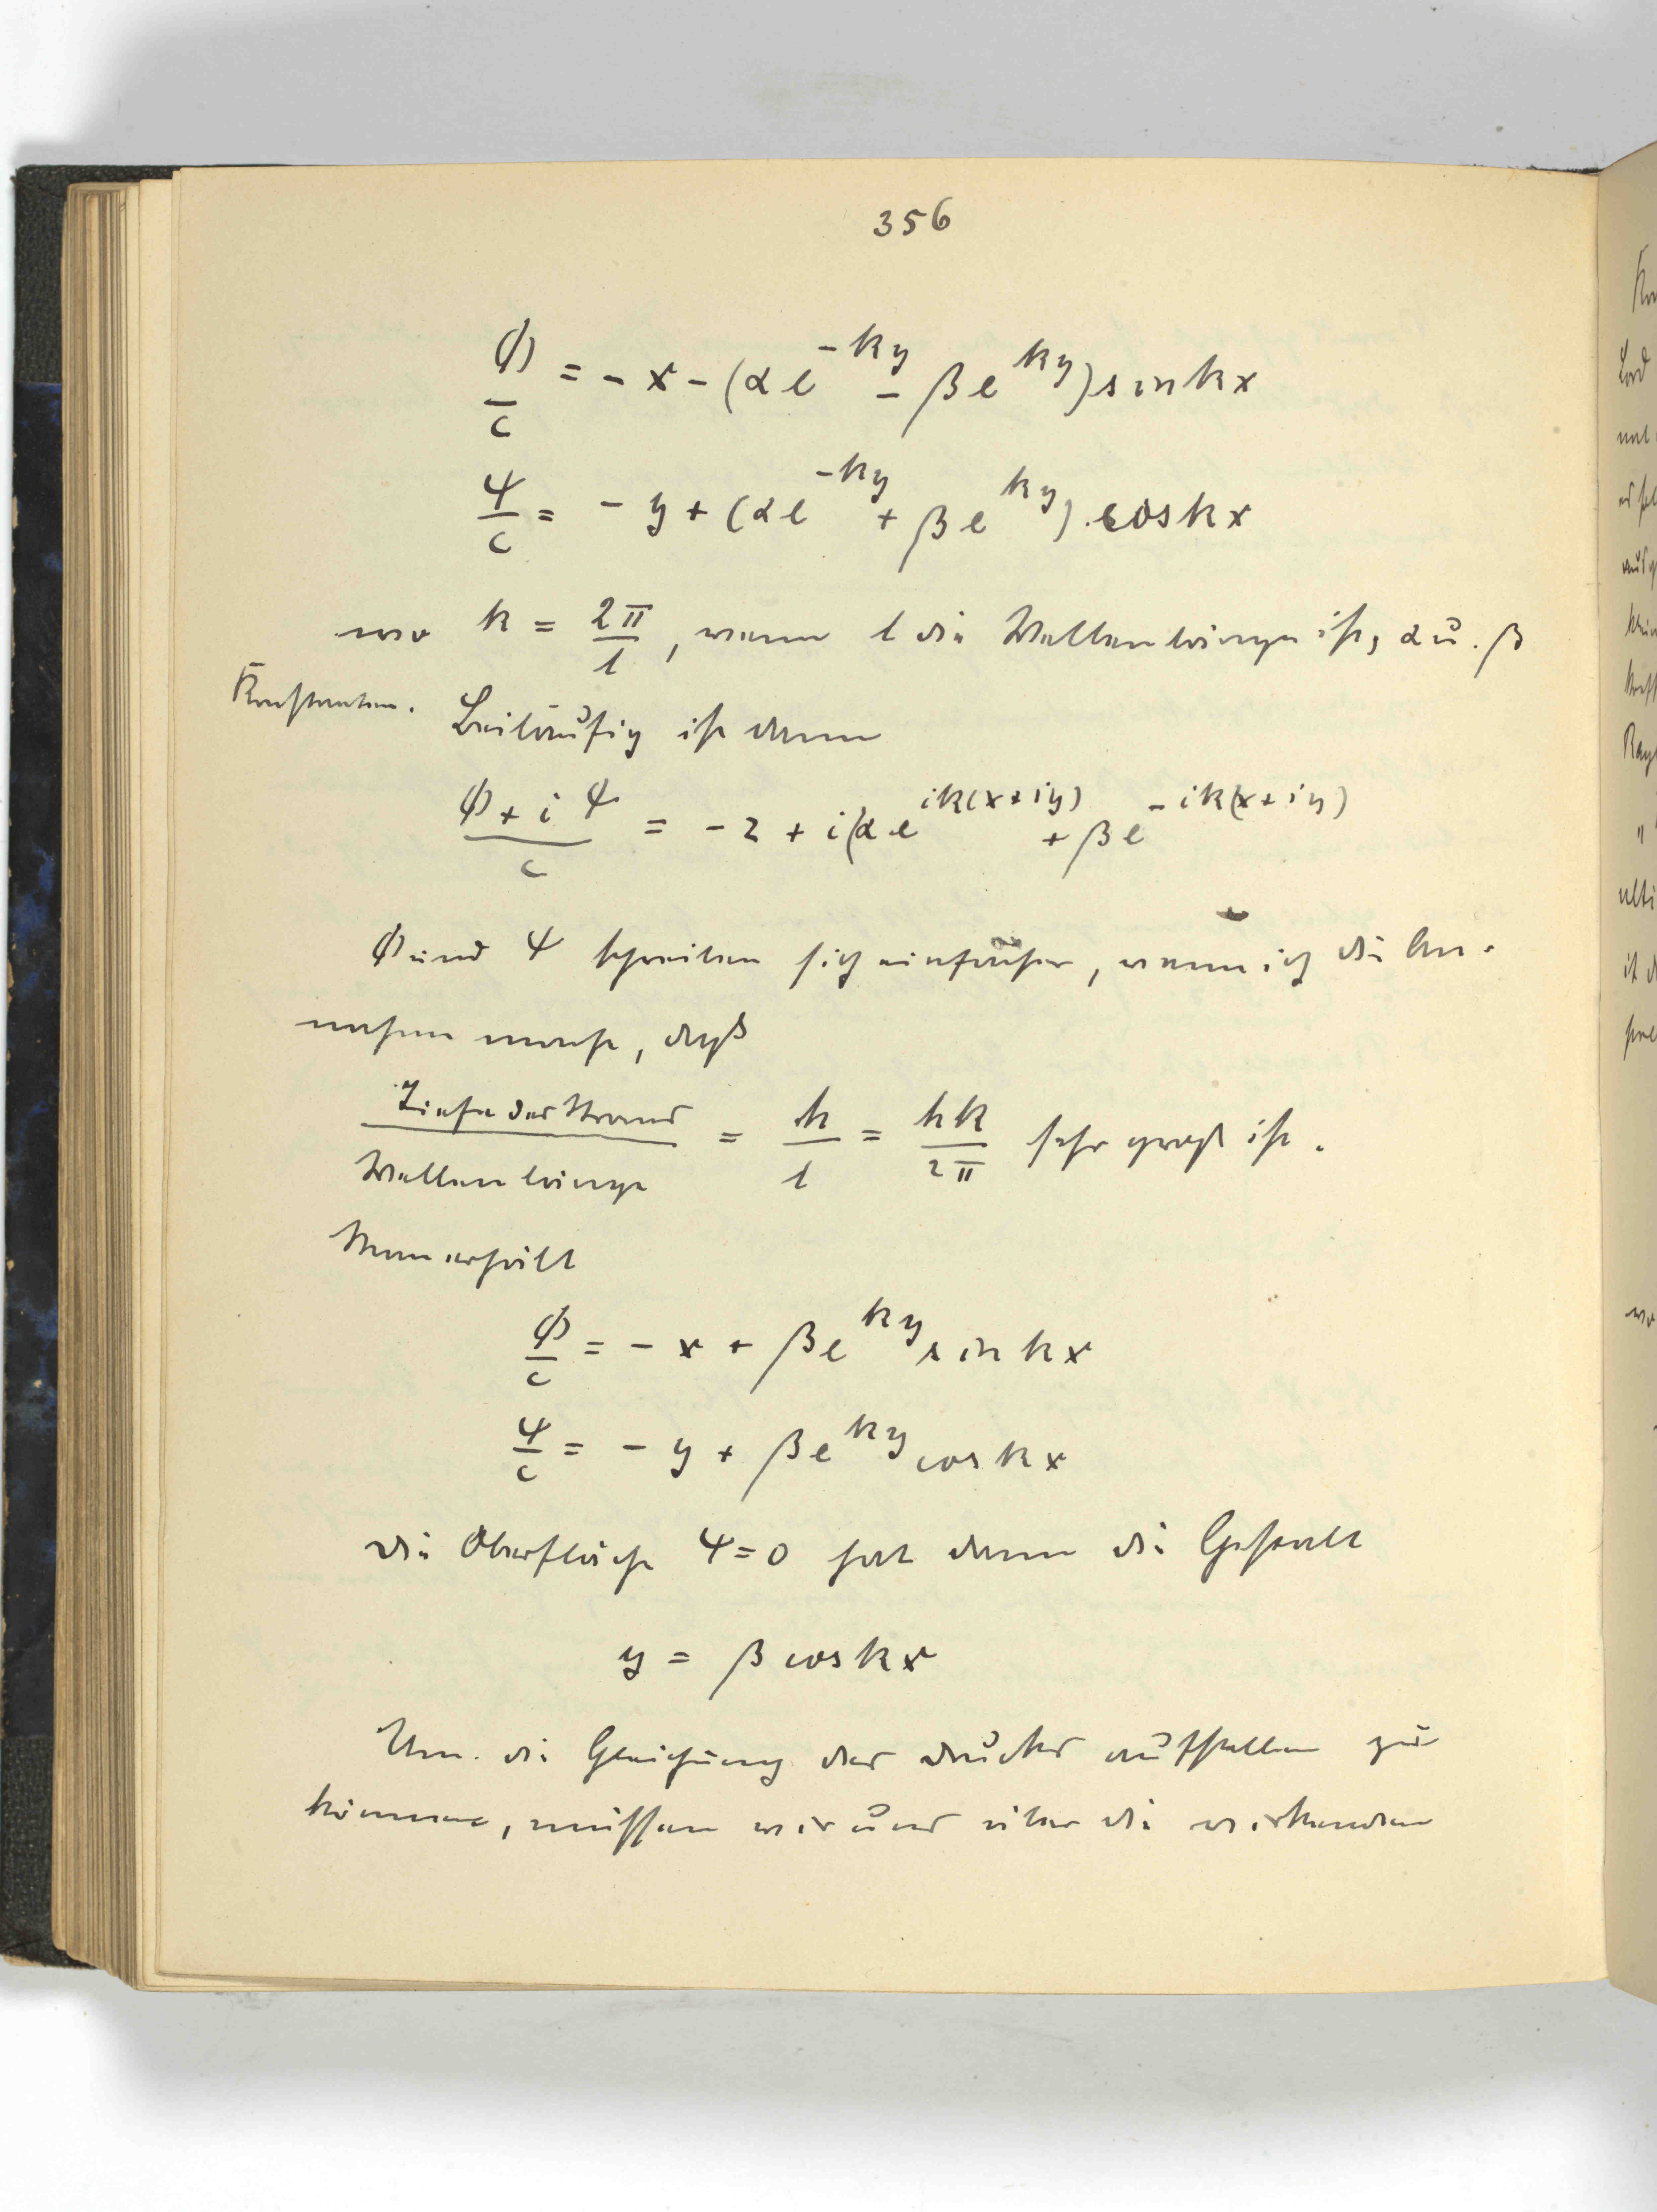 356
Φ/c = - x - (α e^{-ky} - β e^{ky}) sin kx
Ψ/c = - y + (α e^{-ky} + β e^{ky}) . cos kx
wo k = 2π/l , wenn l die Wellenlänge ist, α u. β
Konstanten. Beiläufig ist dann
(Φ + i Ψ)/c = - z + i (α e^{ik(x+iy)} + β e^{-ik(x+iy)}
Φ und Ψ schreiben sich einfacher, wenn ich die An-
nahme mache, daß
Tiefe des Stroms / Wellenlänge = h/l = hk/2π sehr groß ist.
Man erhält
Φ/c = - x + β e^{ky} sin kx
Ψ/c = - y + β e^{ky} cos kx
die Oberfläche Ψ = 0 hat dann die Gestalt
y = β cos kx
Um die Gleichung des Druckes aufstellen zu
können, müssen wir uns über die wirkenden